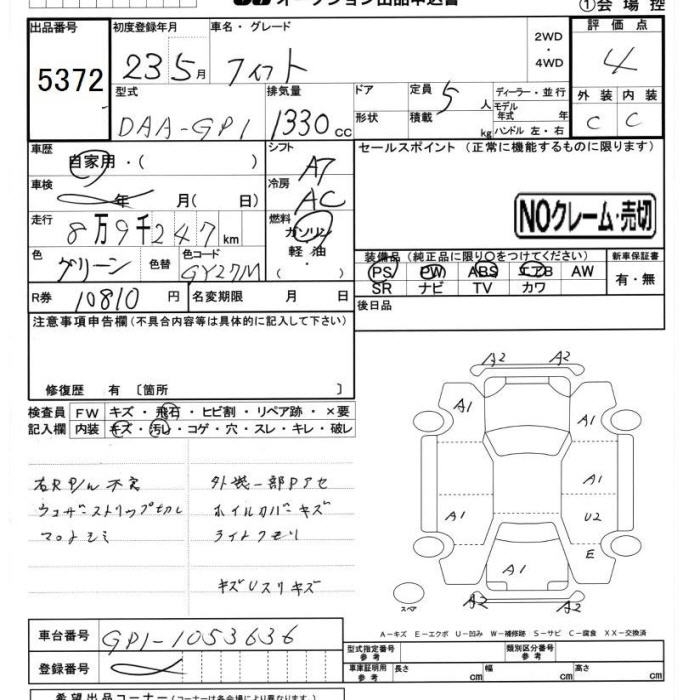 オークション出品申込書
①会場控
出品番号 初度登録年月 車名・グレード 評価点
5372 23 5月 フィット 2WD・4WD 4
型式 排気量 ドア 定員 ディーラー・並行
DAA-GP1 1330cc 形状 5人 モデル年式 年
積載 kg ハンドル 左・右
外装 内装
C C
車歴 自家用・( ) シフト AT セールスポイント(正常に機能するものに限ります)
車検 年 月( 日) 冷房 AC
NOクレーム・売切
走行 8万9千247km 燃料 ガソリン 軽油 ( )
色 グリーン 色替 色コード GY27M
装備品(純正品に限り○をつけてください) 新車保証書
PS PW ABS エアB AW 有・無
SR ナビ TV カワ
R券 10810円 名変期限 月 日
後日品
注意事項申告欄(不具合内容等は具体的に記入して下さい)
修復歴 有〔箇所 〕
検査員 FW キズ・飛石・ヒビ割・リペア跡・×要
記入欄 内装 キズ・汚レ・コゲ・穴・スレ・キレ・破レ
外装一部Pアセ
ウェザーストリップ切レ ホイルカバーキズ
ライトクモリ
キズUスリキズ
A2 A2
A1 A1
A1
A1 U2
E
A1
A2 A2
スペア
A-キズ E-エクボ U-凹み W-補修跡 S-サビ C-腐食 XX-交換済
車台番号 GP1-1053636
登録番号
型式指定番号参考 類別区分番号
車庫証明用参考 長さ cm 幅 cm 高さ cm
希望出品コーナー(コーナーは各会場により異なります)